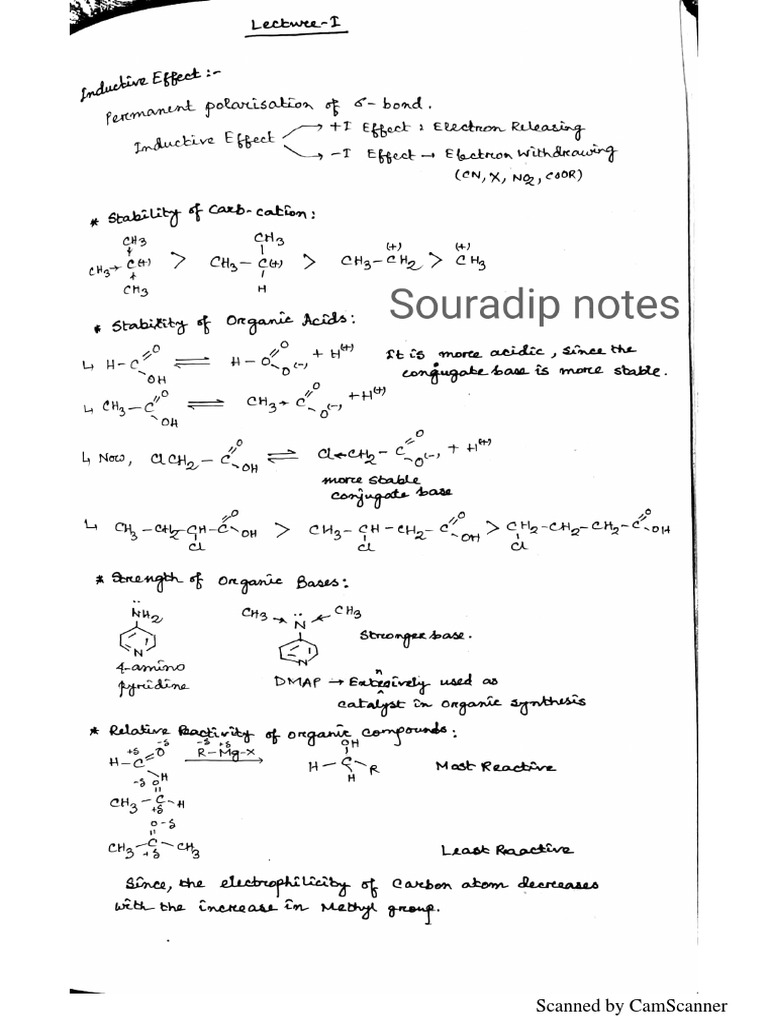 Lecture-I
Inductive Effect :-
Permanent polarisation of σ-bond.
Inductive Effect → +I Effect : Electron Releasing
→ -I Effect → Electron Withdrawing
(CN, X, NO2, COOR)
* Stability of Carb-cation :
CH3 CH3
CH3→ C(+) > CH3 — C(+) > CH3 — CH2 (+) > CH3 (+)
CH3 H
Souradip notes
* Stability of Organic Acids :
↳ H-C=O OH ⇌ H-C=O O(-) + H(+) It is more acidic, since the
conjugate base is more stable.
↳ CH3-C=O OH ⇌ CH3→C=O O(-) + H(+)
↳ Now, ClCH2-C=O OH ⇌ Cl←CH2-C=O O(-) + H(+)
more stable
conjugate base
↳ CH3-CH2-CH-C=O OH > CH3-CH-CH2-C=O OH > CH2-CH2-CH2-C=O OH
Cl Cl Cl
* Strength of Organic Bases :
NH2 CH3→N←CH3
N N Stronger base.
4-amino
pyridine
DMAP → Extensively used as
catalyst in organic synthesis
* Relative Reactivity of organic compounds :
H-C=O H +δ -δ R-Mg-X -δ +δ → OH H-C-R H Most Reactive
-δ O
CH3-C-H
+δ
O-δ
CH3-C-CH3 Least Reactive
+δ
Since, the electrophilicity of Carbon atom decreases
with the increase in Methyl group.
Scanned by CamScanner